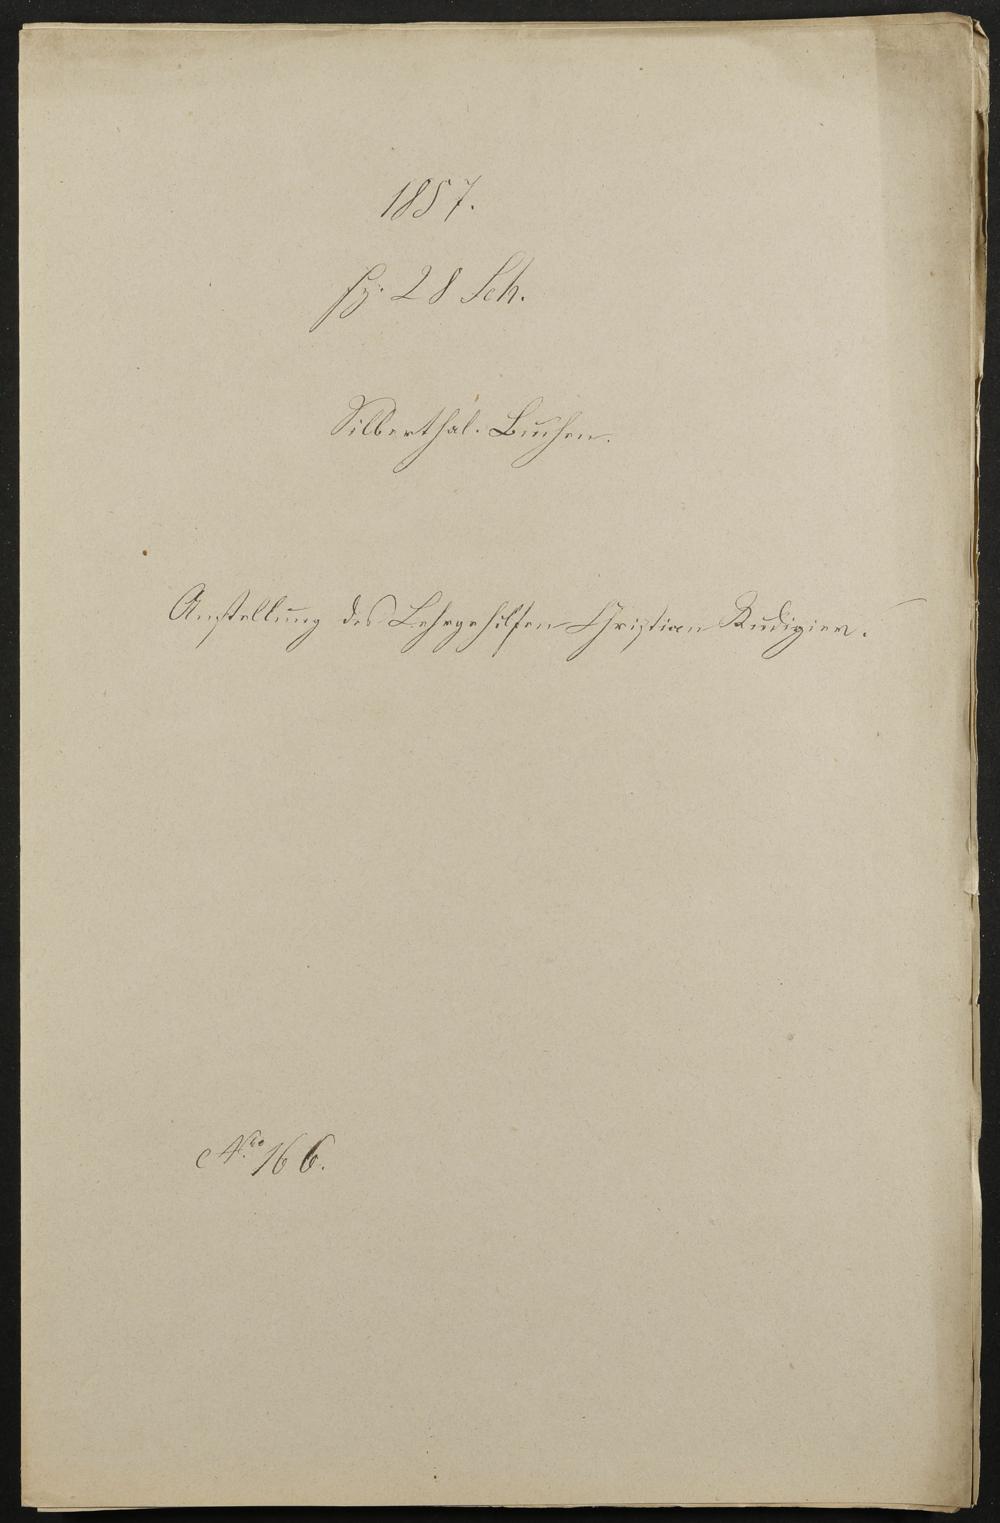 1857.
Fz. 28 Sch.
Silberthal. Buchen.
Anstellung des Lehrgehilfen Christian Rudigier.
No 166.